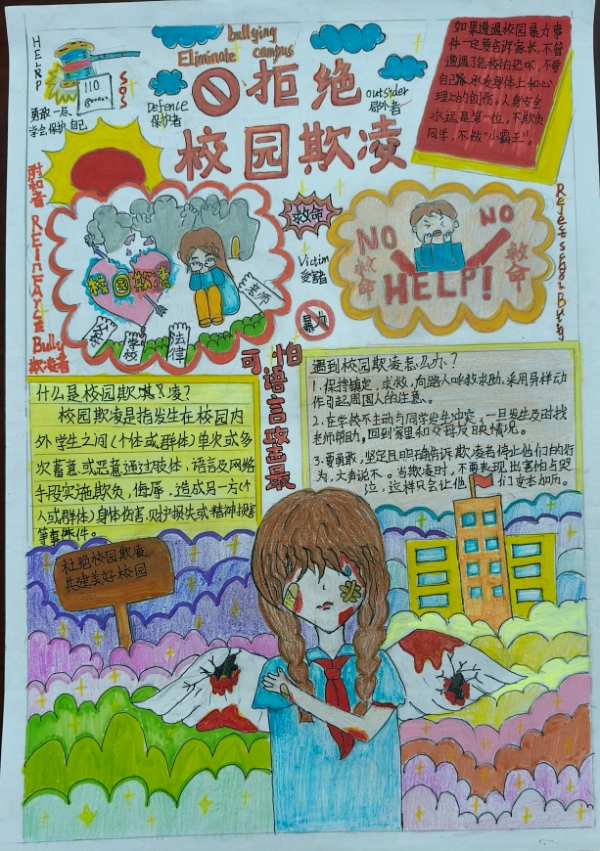 HELRP
SOS
110
勇敢一点、
学会保护自己
bullying
Eliminate campus
Defence
保护者
outsider
局外者
拒绝
校园欺凌
如果遭遇校园暴力事
件一定要告诉家长,不管
遭遇了怎样的恐吓,不要
自己承受身体上和心
理上的创伤,人身安全
永远是第一位,不欺负
同学,不做"小霸王"。
附和者
Bully
欺凌者
校园欺凌
家
学校
法律
老师
救命
Victim
受害者
暴力
NO
NO
救命
救命
HELP!
可怕
语言攻击最
什么是校园欺凌?
校园欺凌是指发生在校园内
外学生之间(个体或群体)单次或多
次蓄意或恶意通过肢体,语言及网络
手段实施欺负,侮辱,造成另一方(个
人或群体)身体伤害、财产损失或精神损害
等事件。
遇到校园欺凌怎么办?
1.保持镇定,求救,向路人呼救求助,采用异样动
作引起周围人的注意。
2.在学校不主动与同学发生冲突,一旦发生及时找
老师帮助,回到家里和父母反映情况。
3.要勇敢,坚定且明确告诉欺凌者停止他们的行
为,大声说不。当欺凌时,不要表现出害怕与哭
泣,这样只会让他们变本加厉。
杜绝校园欺凌
共建美好校园